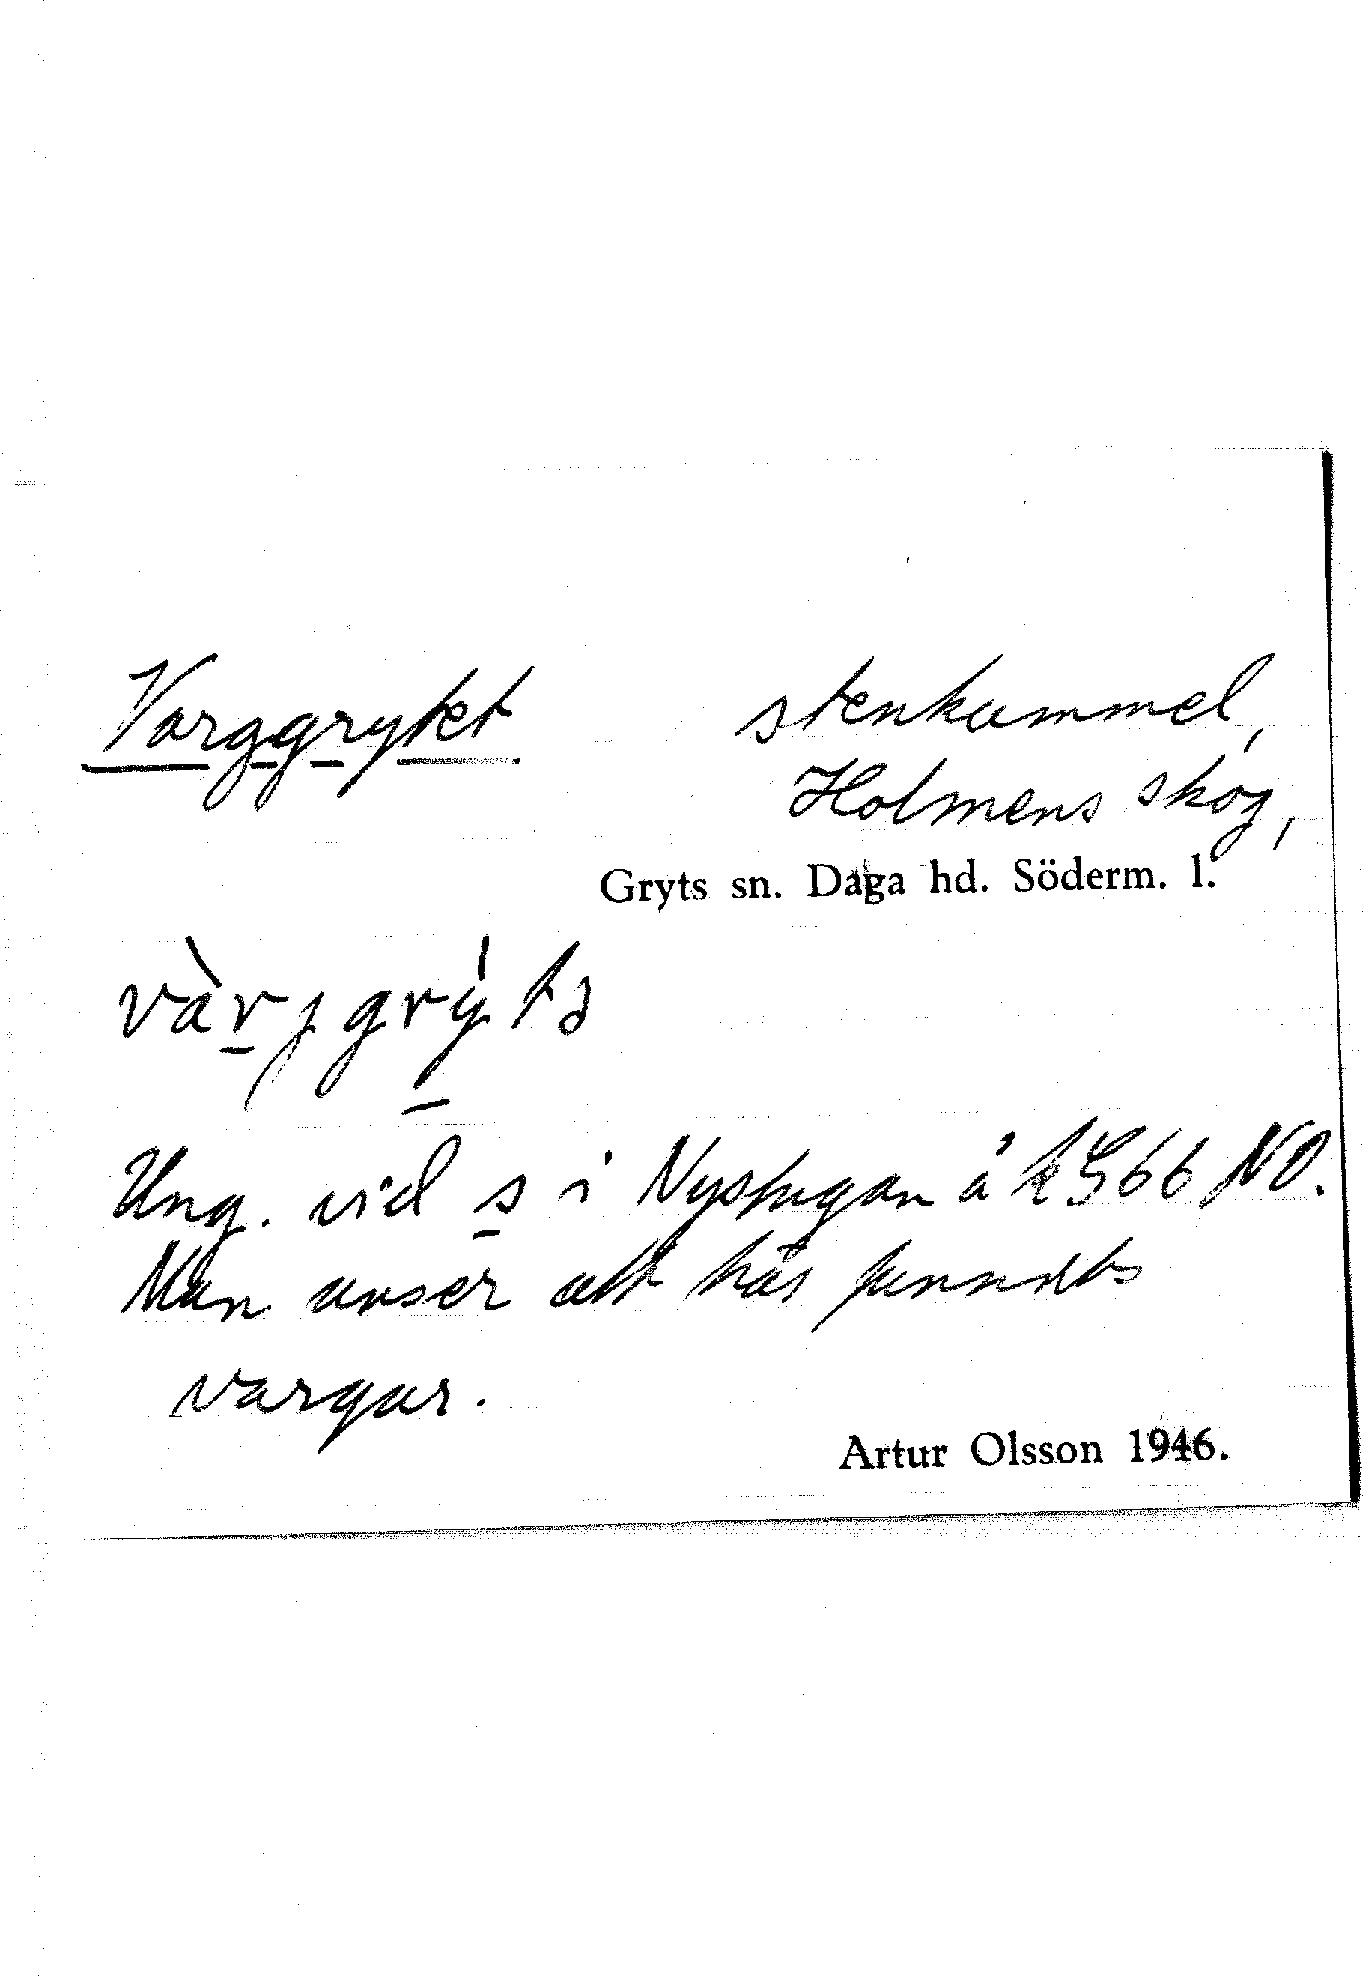 Varggrytet stenkummel,
Holmens skog,
Gryts sn. Daga hd. Söderm. l.
vàrjgrỳtə
Ung. vid s i Nystugan å k 566 NO.
Man anser att här funnits
vargar.
Artur Olsson 1946.